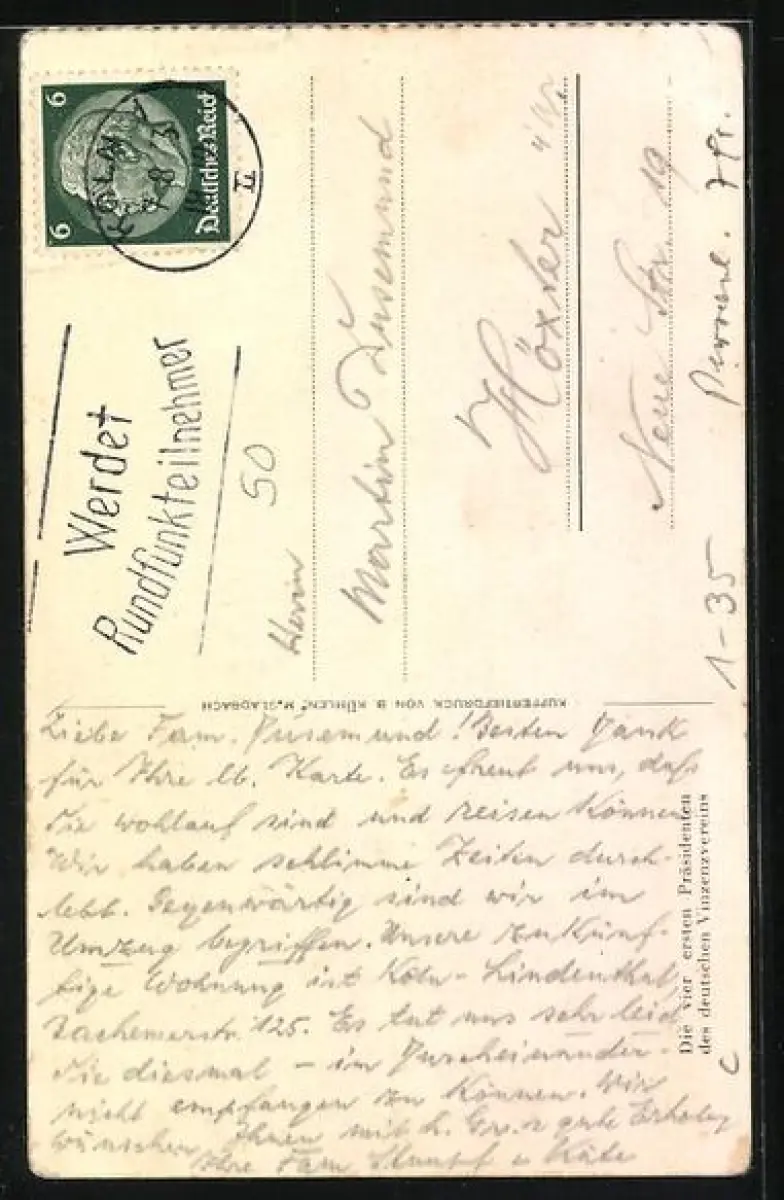 6 6
Deutsches Reich
KÖLN
Werdet
Rundfunkteilnehmer
50
Herrn
Martin Dusemund
Höxter
Neue Str 19
1-35
KUPFERTIEFDRUCK VON B. KÜHLEN, M. GLADBACH
Liebe Fam. Dusemund! Besten Dank
für Ihre lb. Karte. Es freut uns, daß
Sie wohlauf sind und reisen können
Wir haben schlimme Zeiten durch-
lebt. Gegenwärtig sind wir im
Umzug begriffen. Unsere zukünf-
tige Wohnung ist Köln-Lindenthal,
Bachemerstr. 125. Es tut uns sehr leid
Sie diesmal – im Durcheinander –
nicht empfangen zu können. Wir
wünschen Ihnen mit h. gute Erholg
Ihre Fam. Stumpf u Käte
Die vier ersten Präsidenten
des deutschen Vinzenzvereins